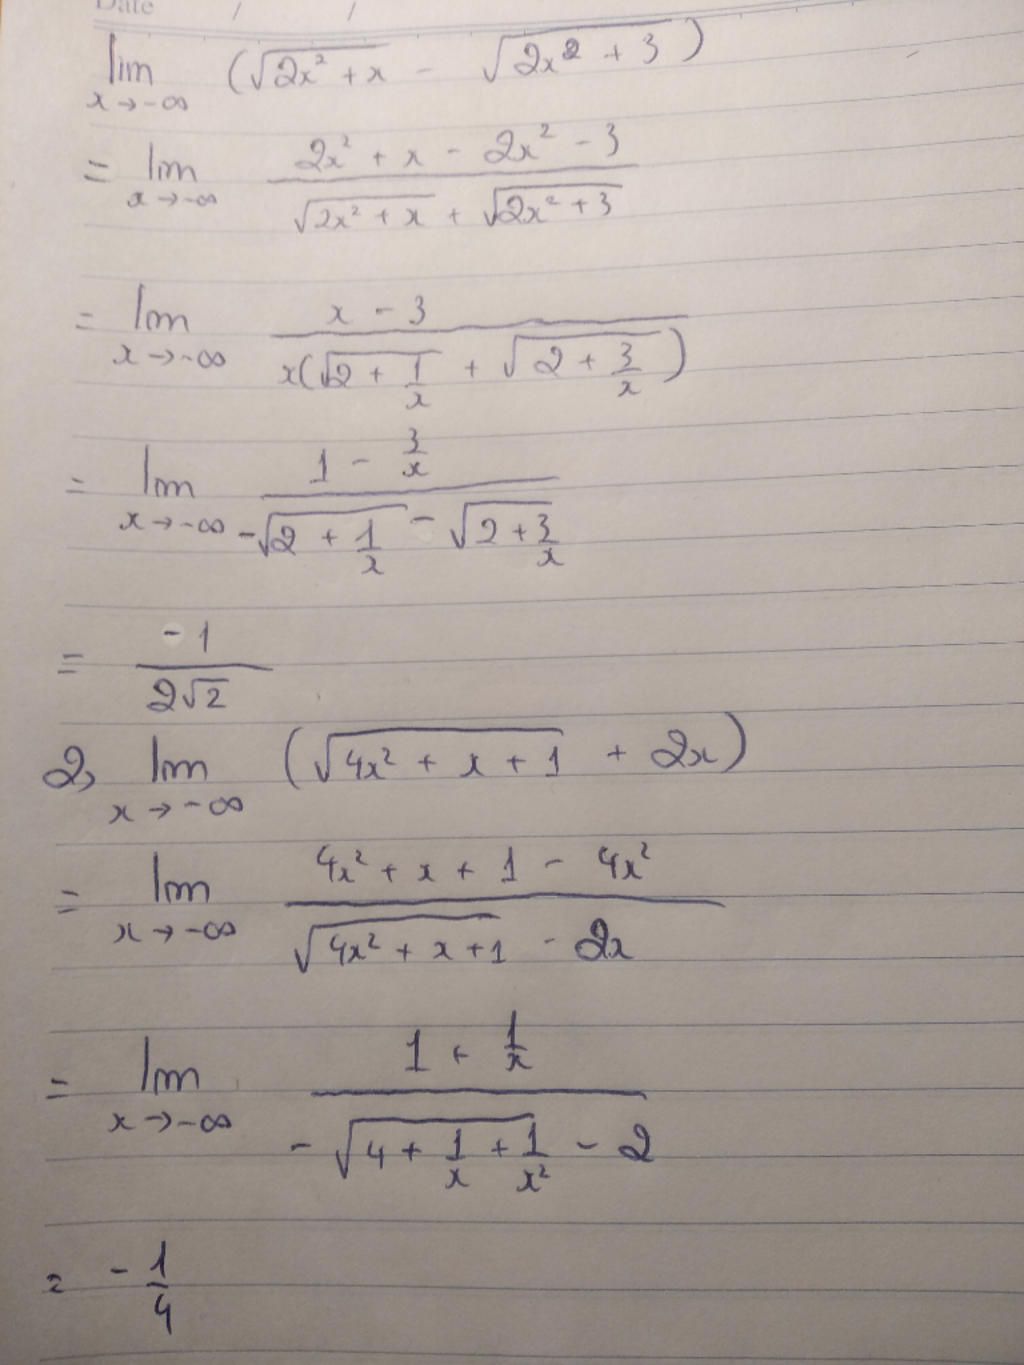 Date / /
lim x→-∞ (√(2x² + x) - √(2x² + 3))
= lim x→-∞ (2x² + x - 2x² - 3)/(√(2x² + x) + √(2x² + 3))
= lim x→-∞ (x - 3)/(x(√(2 + 1/x) + √(2 + 3/x)))
= lim x→-∞ (1 - 3/x)/(-√(2 + 1/x) - √(2 + 3/x))
= -1/(2√2)
2, lim x→-∞ (√(4x² + x + 1) + 2x)
= lim x→-∞ (4x² + x + 1 - 4x²)/(√(4x² + x + 1) - 2x)
= lim x→-∞ (1 + 1/x)/(-√(4 + 1/x + 1/x²) - 2)
= -1/4